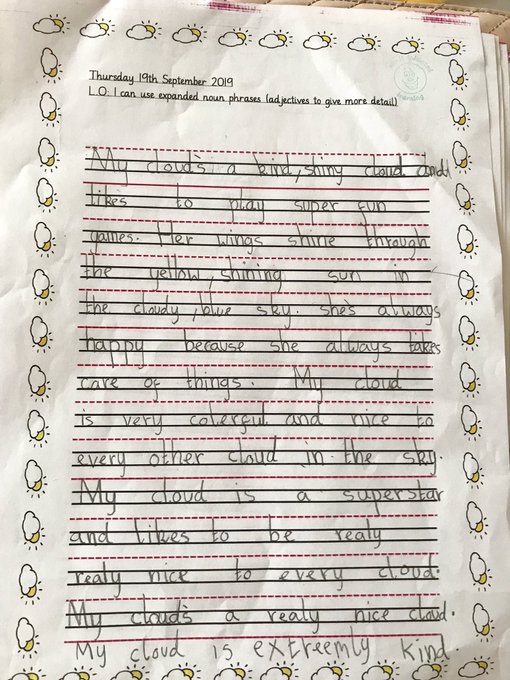 Thursday 19th September 2019
L.O: I can use expanded noun phrases (adjectives to give more detail)
My cloud's a kind, shiny cloud and
likes to play super fun
games. Her wings shine through
the yellow, shining sun in
the cloudy, blue sky. She's always
happy because she always takes
care of things. My cloud
is very colerful and nice to
every other cloud in the sky.
My cloud is a superstar
and likes to be realy
realy nice to every cloud.
My cloud's a realy nice cloud.
My cloud is extreemly kind.